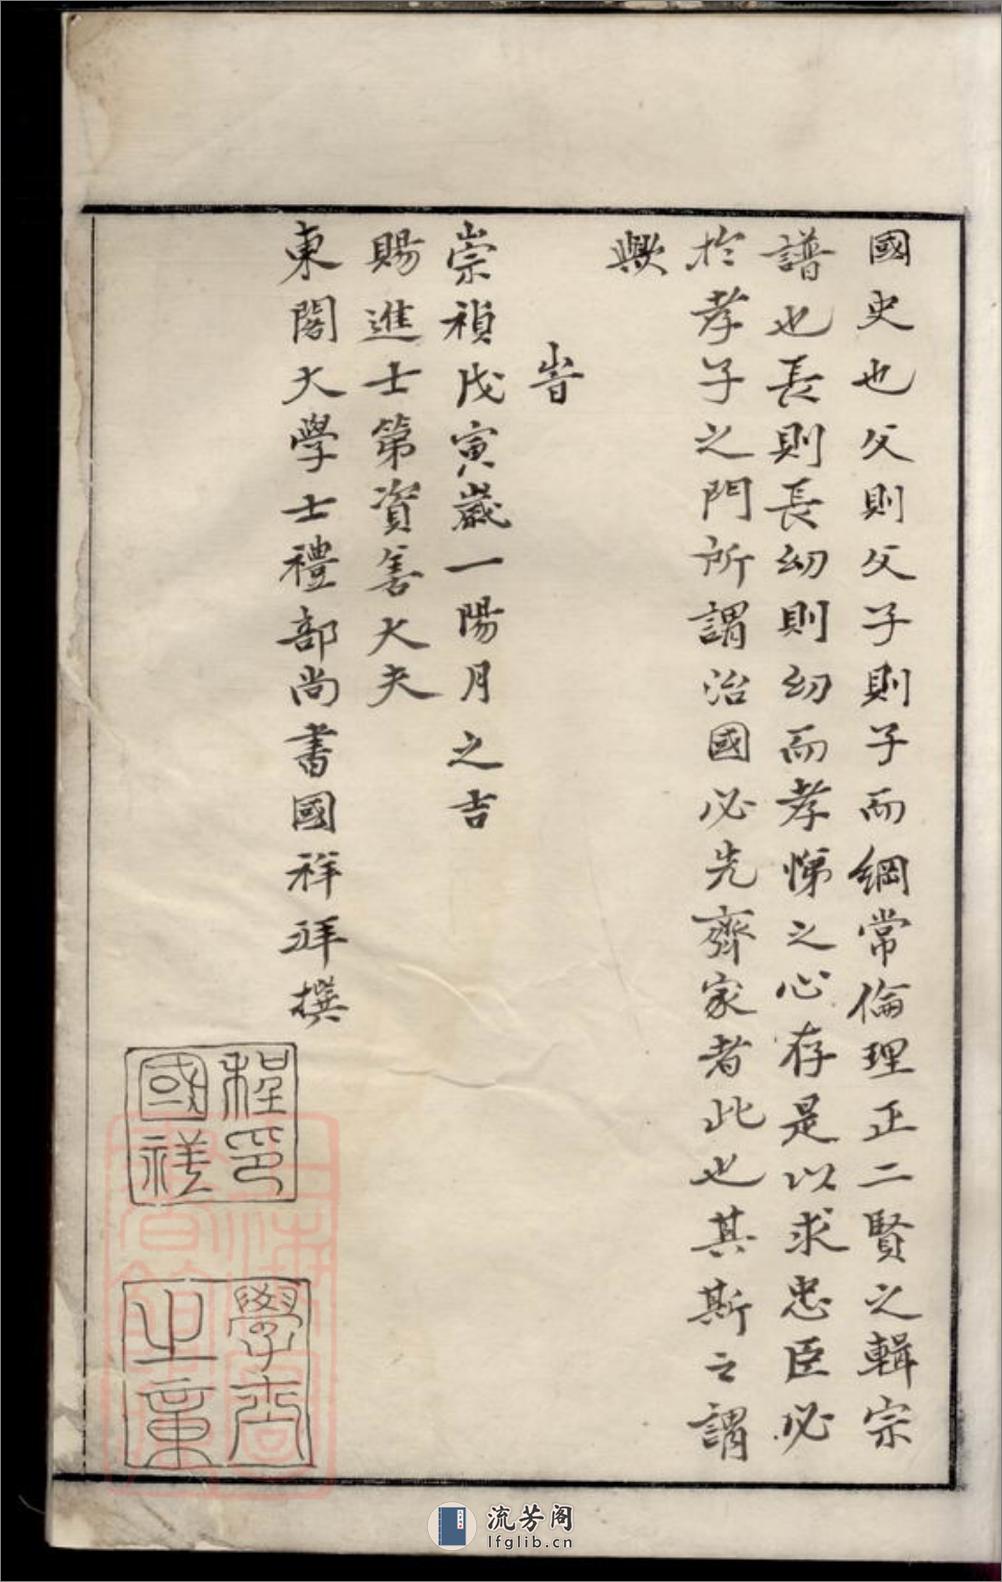 國史也父則父子則子而綱常倫理正二賢之輯宗
譜也長則長幼則幼而孝悌之心存是以求忠臣必
於孝子之門所謂治國必先齊家者此也其斯之謂
歟
旹
崇禎戊寅歲一陽月之吉
賜進士第資善大夫
東閣大學士禮部尚書國祥拜撰
程印國祥
學士之章
流芳阁
lfglib.cn